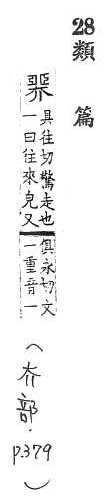 28
類篇
臩
具往切驚走也
一曰往來皃又
俱永切文
一重音一
(夰部. p.379)